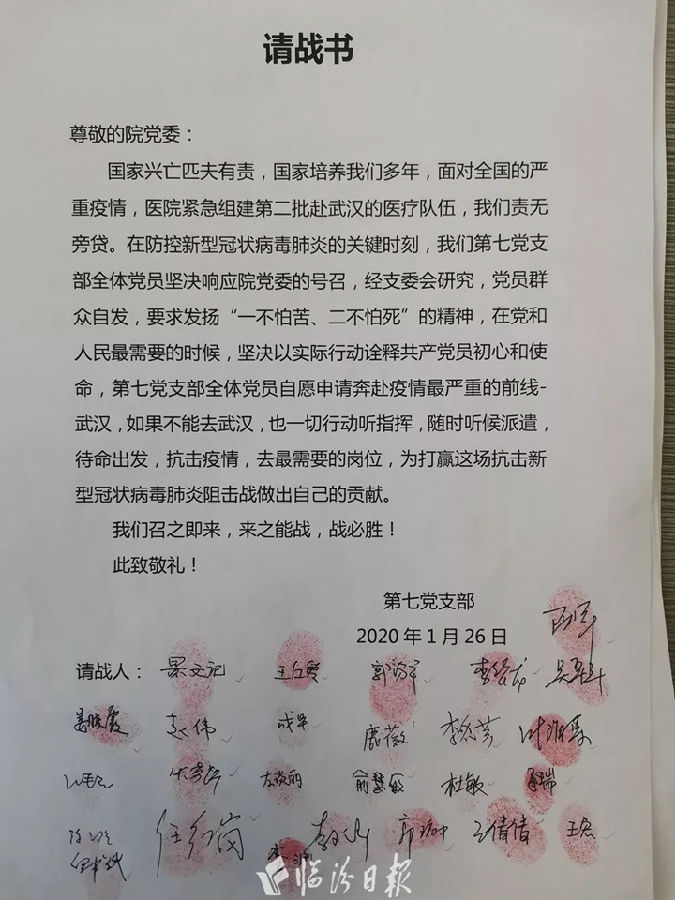 请战书
尊敬的院党委：
国家兴亡匹夫有责，国家培养我们多年，面对全国的严
重疫情，医院紧急组建第二批赴武汉的医疗队伍，我们责无
旁贷。在防控新型冠状病毒肺炎的关键时刻，我们第七党支
部全体党员坚决响应院党委的号召，经支委会研究，党员群
众自发，要求发扬“一不怕苦、二不怕死”的精神，在党和
人民最需要的时候，坚决以实际行动诠释共产党员初心和使
命，第七党支部全体党员自愿申请奔赴疫情最严重的前线-
武汉，如果不能去武汉，也一切行动听指挥，随时听候派遣，
待命出发，抗击疫情，去最需要的岗位，为打赢这场抗击新
型冠状病毒肺炎阻击战做出自己的贡献。
我们召之即来，来之能战，战必胜！
此致敬礼！
第七党支部
2020年1月26日
请战人：
姜晓霞 赵伟 成华 鹿薇
俞慧敏 杜敏
任红岗 王倩倩 王宏
临汾日报